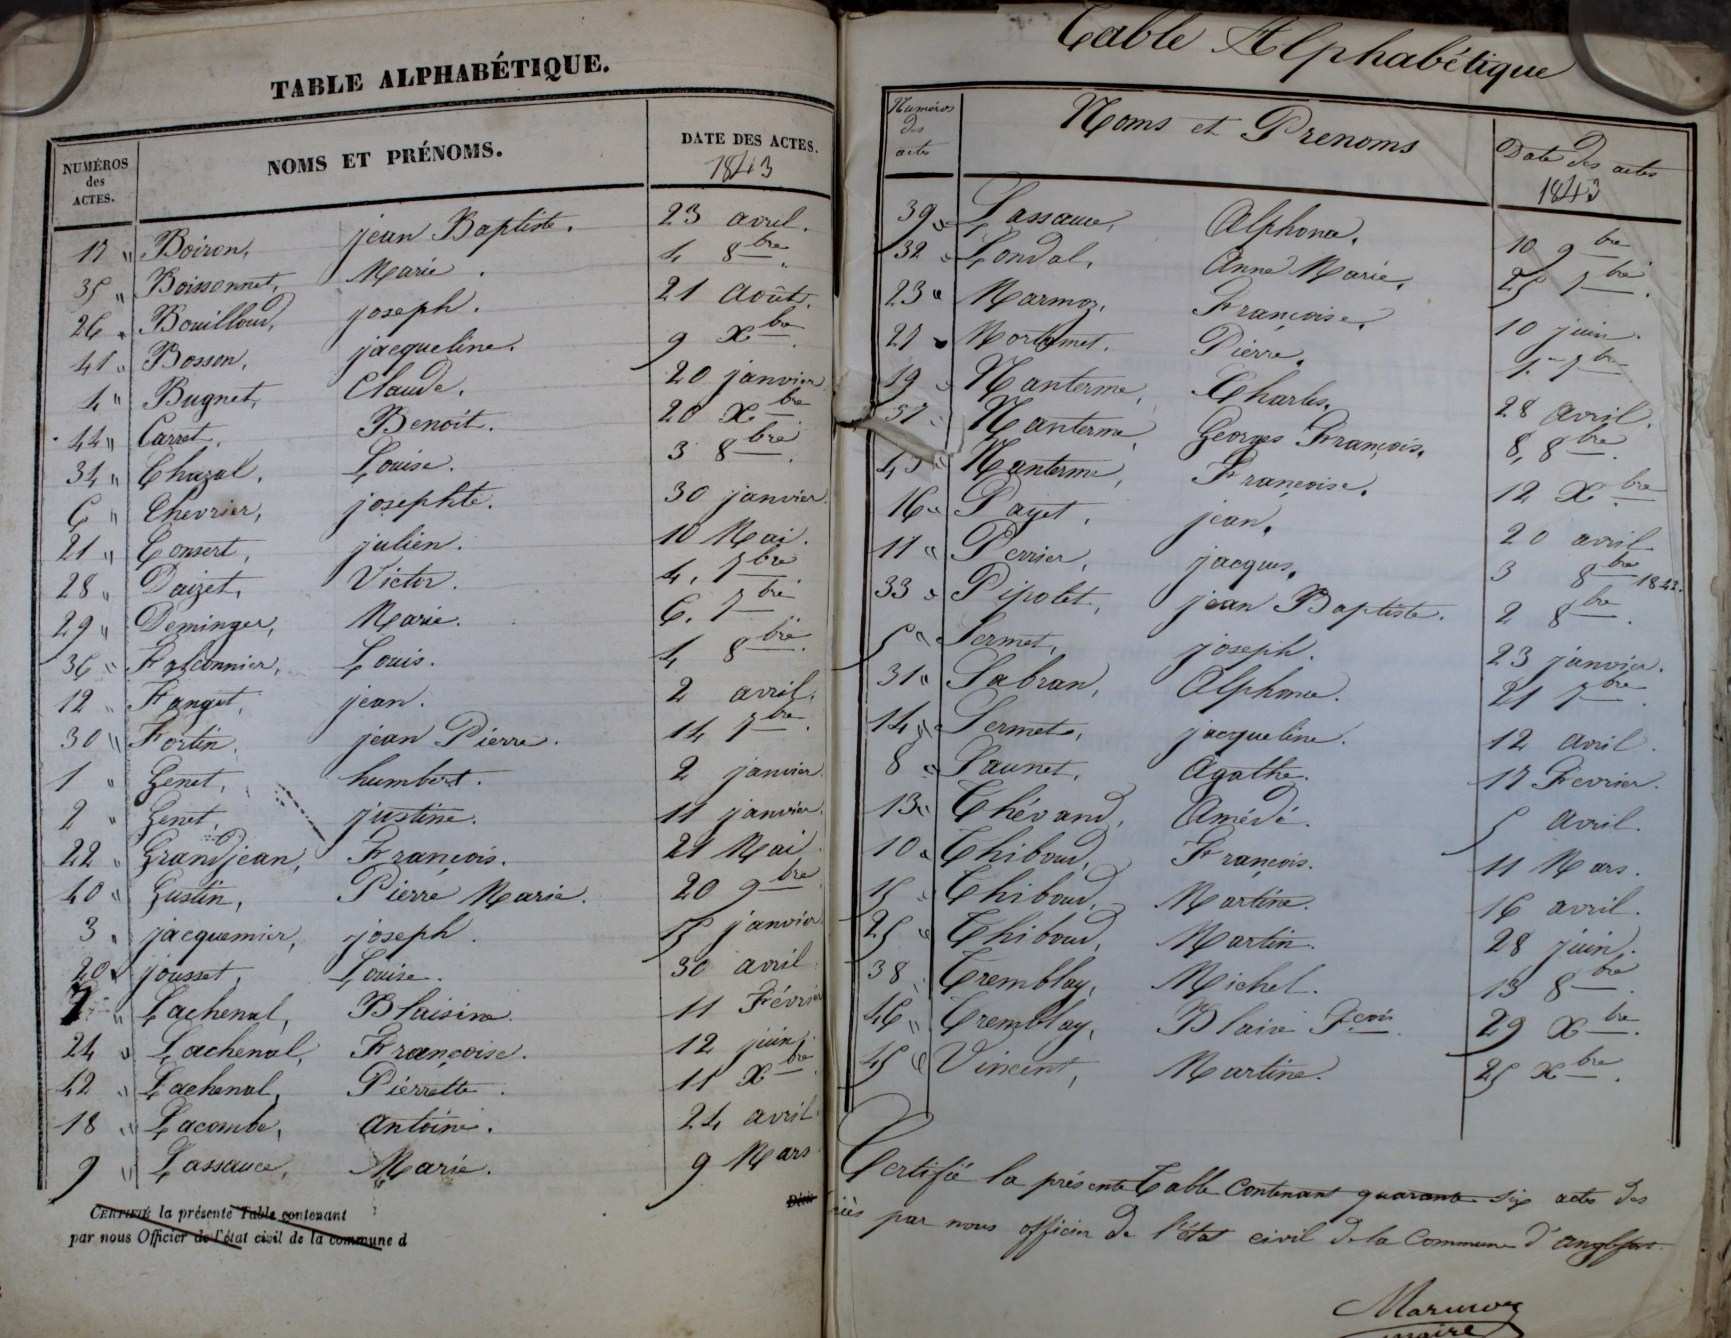 TABLE ALPHABÉTIQUE.
NUMÉROS des ACTES. NOMS ET PRÉNOMS. DATE DES ACTES. 1843
17 " Boiron, jean Baptiste. 23 avril.
35 " Boissonnet, Marie. 4 8bre.
26 " Bouilloud, joseph. 21 août.
41 " Bosson, jacqueline. 9 Xbre.
4 " Bugnet, Claude. 20 janvier
44 " Carret, Benoit. 20 Xbre.
34 " Chazal, Louise. 3 8bre.
6 " Chevrier, josephte. 30 janvier
21 " Consert, julien. 10 Mai.
28 " Daizet, Victor. 4. 7bre
29 " Deminger, Marie. 6. 7bre
36 " Falconnier, Louis. 4 8bre.
12 " Fanget, jean. 2 avril.
30 " Fortin, jean Pierre. 14 7bre.
1 " Genet, humbert. 2 janvier.
2 " Genet, justine. 11 janvier.
22 " Grandjean, François. 21 Mai.
40 " Gustin, Pierre Marie. 20 9bre
3 " jacquemier, joseph. 15 janvier
20 " jousset, Louise. 30 avril
7 " Lachenal, Blaisine. 11 Février
24 " Lachenal, Françoise. 12 juin.
42 " Lachenal, Pierrette. 11 Xbre.
18 " Lacombe, Antoine. 24 avril
9 " Lassauce, Marie. 9 Mars
CERTIFIÉ la présente Table contenant
par nous Officier de l'état civil de la commune d
Table Alphabétique
Numéros des actes Noms et Prenoms Date des actes 1843
39 " Lassauce, Alphonse. 10 9bre
32 " Londal, Anne Marie. 25 7bre.
23 " Marmoz, Françoise. 10 juin.
27 " Mortamet. Pierre. 1. 7bre
19 " Nanterme, Charles. 28 avril.
37 " Nanterme, Georges François. 8, 8bre.
43 " Nanterme, Françoise. 12 Xbre.
16 " Payet, jean. 20 avril
11 " Perrier, jacques. 3 8bre 1842.
33 " Pipolet, jean Baptiste. 2 8bre.
5 " Sermet, joseph. 23 janvier.
31 " Sabran, Alphonse. 21 7bre.
14 " Sermet, jacqueline. 12 avril.
8 " Saunet, Agathe. 17 Fevrier.
13 " Thévand, Amédé. 5 avril.
10 " Thiboud, François. 11 Mars.
15 " Thiboud, Martine. 16 avril.
25 " Thiboud, Martin. 28 juin.
38 " Tremblay, Michel. 13 8bre.
46 " Tremblay, Blaise Fçois. 29 Xbre.
45 " Vincent, Martine. 25 Xbre.
Certifié la présente Table Contenant quarante six actes des
par nous officier de l'état civil de la Commune d'anglefort.
Marmoz
maire